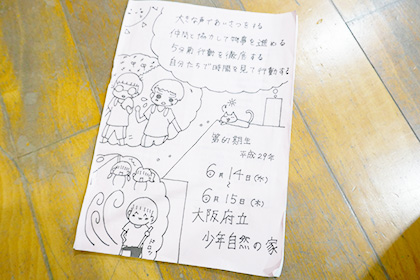 大きな声であいさつをする
仲間と協力して物事を進める
5分前行動を徹底する
自分たちで時間を見て行動する
第61期生
平成29年
6月14日(水)
~
6月15日(木)
大阪府立
少年自然の家